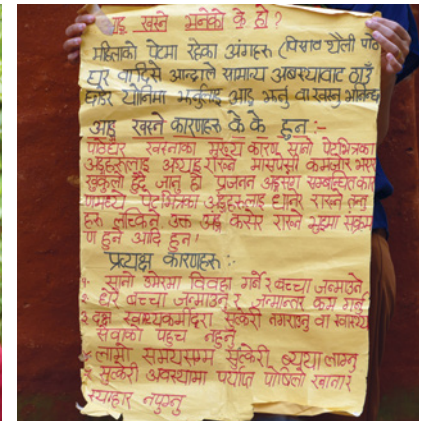 आङ्ग खस्ने भनेको के हो ?
महिलाको पेटमा रहेका अंगहरू (पिसाब थैली पाठे
घर वा दिसे आन्द्राले सामान्य अवस्थाबाट ठाउँ
छाडेर योनिमा झर्नुलाई आङ झर्नु वा खस्नु भनिन्छ
आङ खस्ने कारणहरू के के हुन :-
पाठेघर खस्नाका मुख्य कारण सानो पेटभित्रका
अङ्गहरूलाई अड्याइ राख्ने मांसपेसी कमजोर भएर
खुकुलो हुँदै जानु हो प्रजनन अङ्गसंग सम्बन्धित कार
णमध्ये पेटभित्रका अङ्गहरूलाई धानेर राख्ने तन्तु
हरू लच्किने उक्त अङ्ग कसेर राख्ने
ण हुने आदि हुन ।
प्रत्यक्ष कारणहरू :-
१. सानो उमेरमा विवाह गर्ने र बच्चा जन्माउने
२ धेरै बच्चा जन्माउनु र जन्मान्तर कम गर्नु
३ दक्ष स्वास्थ्यकर्मीद्वारा सुत्केरी नगराउनु वा स्वास्थ्य
सेवाको पहुँच नहुनु
४ लामो समयसम्म सुत्केरी व्यथा लाग्नु
५ सुत्केरी अवस्थामा पर्याप्त पोषिलो खाना र
स्याहार नपुग्नु